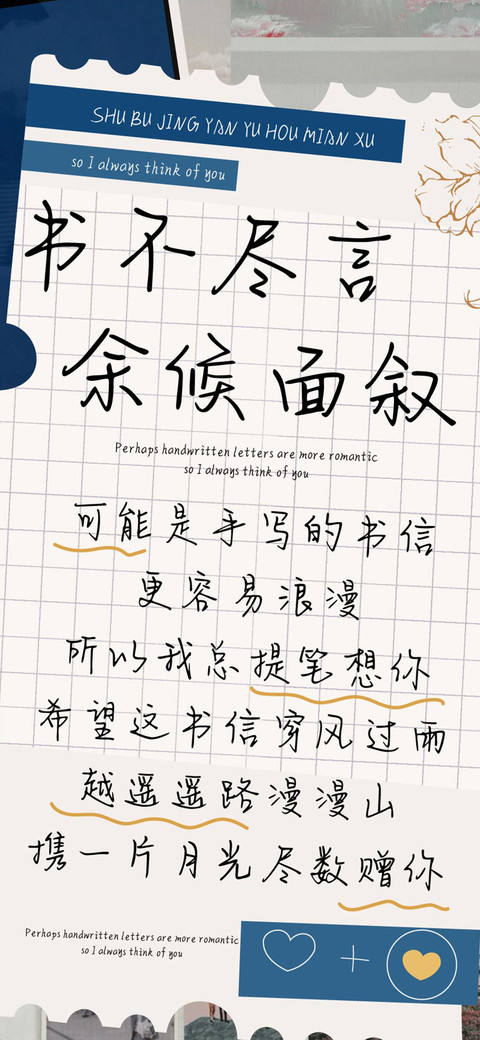 SHU BU JING YAN YU HOU MIAN XU
so I always think of you
书不尽言
余候面叙
Perhaps handwritten letters are more romantic
so I always think of you
可能是手写的书信
更容易浪漫
所以我总提笔想你
希望这书信穿风过雨
越遥遥路漫漫山
携一片月光尽数赠你
Perhaps handwritten letters are more romantic
so I always think of you